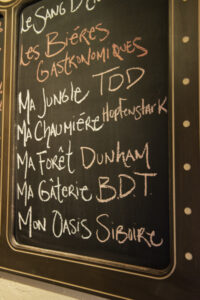 Le Sang D'
Les Biéres
Gastronomiques
Ma Jungle TOD
Ma Chaumiére Hopfenstark
Ma Forêt Dunham
Ma Gâterie B.D.T.
Mon Oasis Siboire